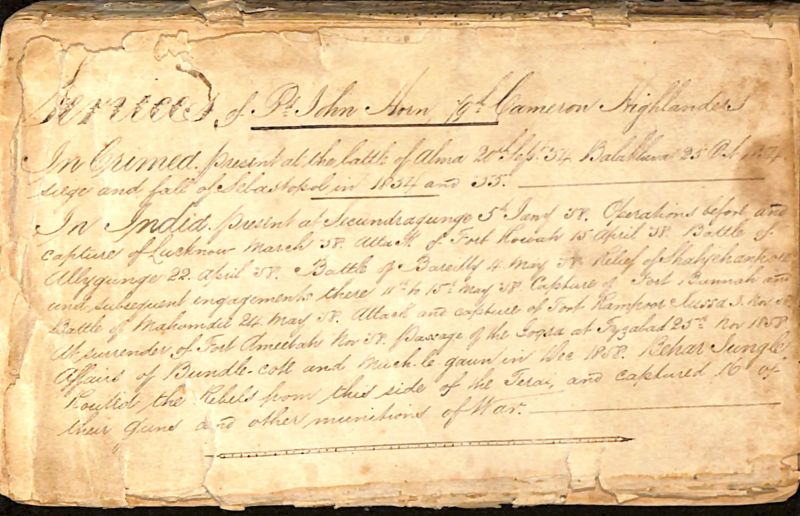 Services of Pt. John Horn, 79th Cameron Highlanders
In Crimea. present at the battle of Alma 20th Sept. 54 Balaklava 25 Oct 1854
siege and fall of Sebastopol in 1854 and 55.
In India. present at Secundragunge 5th Jany 58. Operations before, and
capture of Lucknow March 58. Attack of Fort Rowah 15 April 58. Battle of
Allygunge 22. April 58. Battle of Bareilly 4. May 58. Relief of Shahjehanpore
and subsequent engagements there 11th to 15th May 58. Capture of Fort Bunnah and
Battle of Mahomdie 24 May 58. Attack and capture of Fort Rampoor Kussa 3. Nov 58.
At surrender of Fort Ameetah Nov 58. passage of the Gogra at Fyzabad 25th Nov 1858
Affairs of Bundle-cote and Much-le-gaun in Dec 1858. Behar Jungle
Routed the Rebels from this side of the Terai, and captured 16 of
their Guns and other munitions of War.